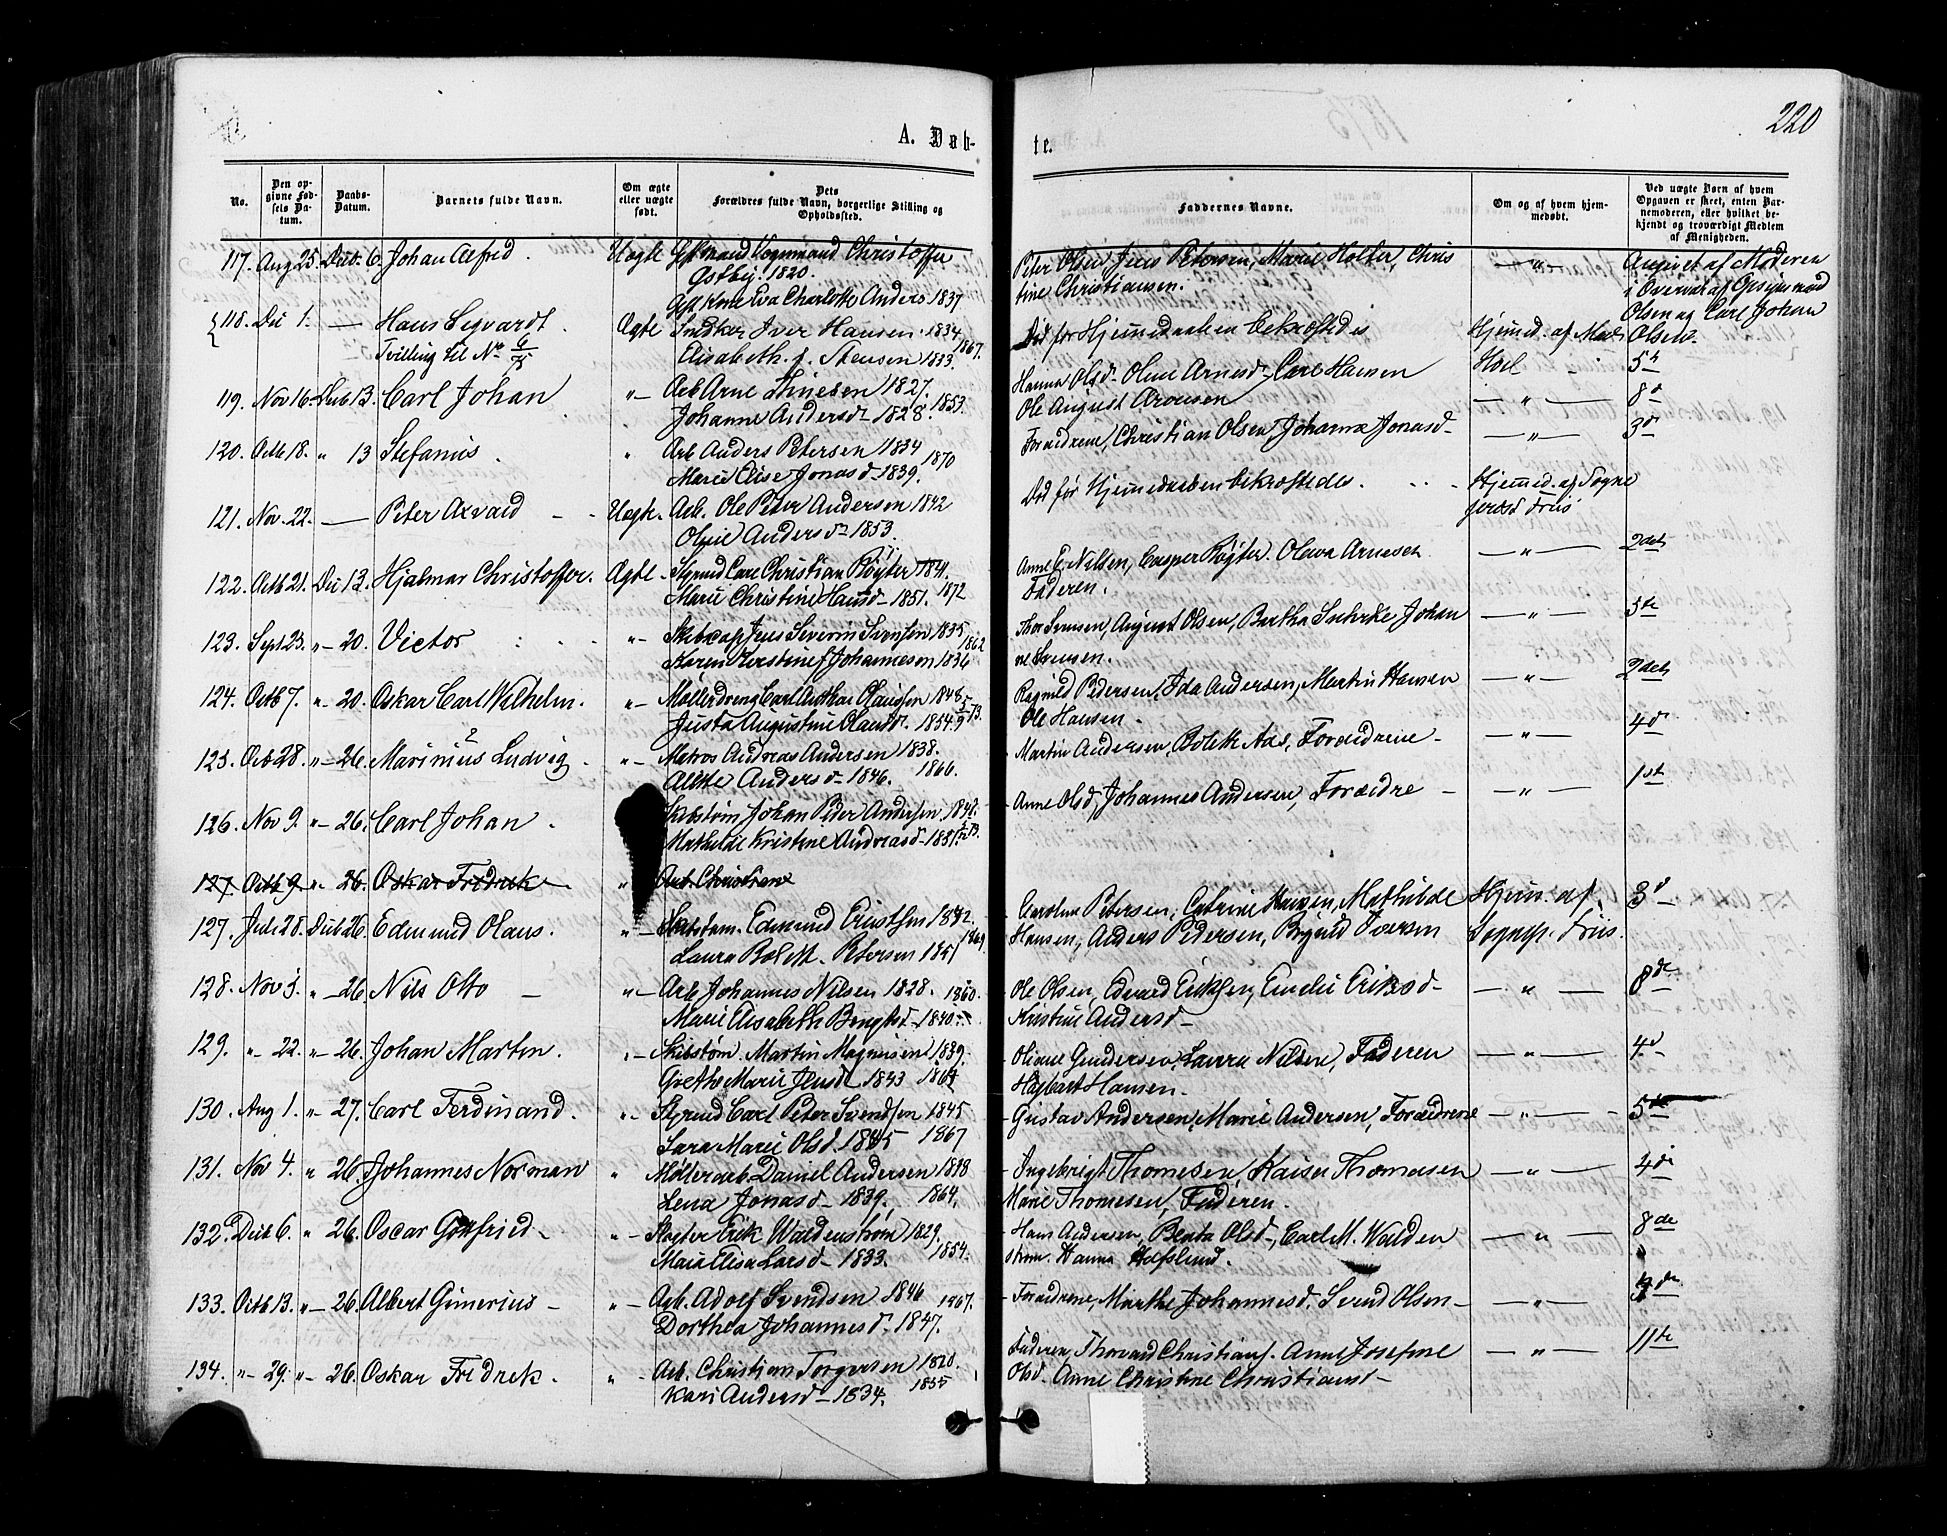 220
A. Døb-
te.
No.
Den op-
givne Fød-
sels Da-
tum.
Daabs-
Datum.
Barnets fulde Navn.
Om ægte
eller uægte
født.
Dets
Forældres fulde Navn, borgerlige Stilling og
Opholdssted.
Faddernes Navne.
Om og af hvem hjem-
medøbt.
Ved uægte Børn af hvem
Opgaven er skeet, enten Bar-
nemoderen, eller hvilket be-
kjendt og troværdigt Medlem
af Menigheden.
117. Aug 25. Decb. 6. Johan Alfred. Uægte Gift Mand Christoffer
Ostbÿ. 1820.
Gift Kone Eva Charlotte Anders 1837
Peter Olsen, Jens Petersen, Marie Holter, Chris
tine Christiansen.
Angivet af Moderen
i Overvær af
Olsen og Carl Johan
Olsen.
118. Dec 1. — Hans Segvardt. Ægte Iver Hansen 1834
Tvilling til No 6/75 Elisabeth f. Stensen 1833. 1867.
Død før Hjemmedaaben bekræftedes Hjemmed. af Mad. 5te
Hoel
119. Nov 16. Decb 13. Carl Johan "— Arb Arne 1827.
Johanne Andersd— 1828. 1853.
Hanna Olsd— Oline Arnesd— Carl Hansen
Ole August Arnesen — " — 8de
120. Octb 18. " 13 Stefanus. " Arb Anders Petersen 1834
Marie Elise Jonasd— 1839. 1870
Forældrene, Christian Olsen, Johanna Jonasd— — " — 3de
121. Nov. 22. — Peter Axvald — Uægte. Arb. Ole Peter Andersen 1842
Oline Andersd— 1853.
Død før Hjemmedaaben bekræftedes. Hjemmed. af Sogne
Friis
122. Octb 21. Dec 13. Hjalmar Christoffer. Ægte — Styrmd Carl Christian Røyter 1841.
Marie Christine Hansd— 1851. 1872
Anne E. Nilsen, Casper Røyter. Olava Arnesen
Faderen. — " — 2det
123. Sept 23. "— 20. Victor "— Skibscap Jens Severin Svensen 1835
Karen Kerstine f Johannesen 1836 1862
Thor Svensen, August Olsen, Bertha, Johan
ne Svensen. — " — 5te
124. Octb 7. "— 20. Oskar Carl Wilhelm. "— Mølledreng Carl Anthor Olaussen 1848
Justa Augustine Olausd. 1854. 5/9 73.
Ragnild Pedersen, Ida Andersen, Martin Hansen
Ole Hansen. — " — 2det
125. Octb 28. "— 26. Marinius Ludvig "— Matros Andreas Andersen 1838.
Alette Andersd— 1846. 1866.
Martin Andersen, Bolette Aas, Forældrene — — " — 4de
126. Nov 9. "— 26. Carl Johan. Skibstøm Johan Peter Andersen 1848.
Mathilde Kristine Andreasd— 1851. 73.
Anne Olsd, Johannes Andersen, Forældre — — " — 1st
127. Octb 9. " 26. Oskar Fredrek— " Arb. Christian
127. Juli 28. Decb 26. Edmund Olaus. "— Skibstøm. Edmund Eriksen 1842.
Laura Bolett. Petersen 1847 1869
Caroline Petersen, Catrine Hansen, Mathilde
Hansen, Anders Pedersen, Iversen Hjem. af
Sognep. Friis. 3d
128. Nov 3. "— 26. Nils Otto — "— Arb Johannes Nilsen 1828. 1860.
Marie Elisabeth Bengtsd— 1840.
Ole Olsen, Edvard Eriksen, Emelie Eriksd—
Kristine Andersd— — " — 8de
129. "— 22. "— 26. Johan Martin. "— Skibstøm. Martin Magnusen 1839.
Grethe Marie Jensd 1843 1864
Oliane Gundersen, Laura Nilsen, Faderen
Hagbart Hansen. — " — 4d
130. Aug 1. "— 27. Carl Ferdinand. "— Styrmd Carl Peter Svendsen 1845
Sara Marie Olsd. 1845 1867
Gustav Andersen, Marie Andersen, Forældrene — " — 5te
131. Nov 4. " 26. Johannes Norman " Møllerarb. Daniel Andersen 1838
Lena Jonasd— 1839. 1864.
Ingebrigt Thomesen, Kaisa Thomesen
Marie Thomesen, Faderen. — " — 4de
132. Decb 6. " 26. Oscar Gotfried— "— Slagter Erik Waldenstrøm 1829.
Maria Elisa Larsd— 1833. 1854.
Hans Andersen, Benta Olsd—, Carl M. Walden
strøm. Hanna Hafslund. — " — 8de
133. Octb 13. "— 26. Albert Gunerius— "— Arb. Adolf Svendsen 1846 1867.
Dorthea Johannesd— 1847.
Forældrene, Marthe Johannesd. Svend Olsen— — " — 4de
134. "— 29. "— 26. Oskar Fredrek. " — Arb. Christian Torgersen 1820.
Kari Andersd— 1834. 1855
Faderen, Thorvard Christians. Anne Josefine
Olsd. Anne Christine Christiansd— — " — 11te